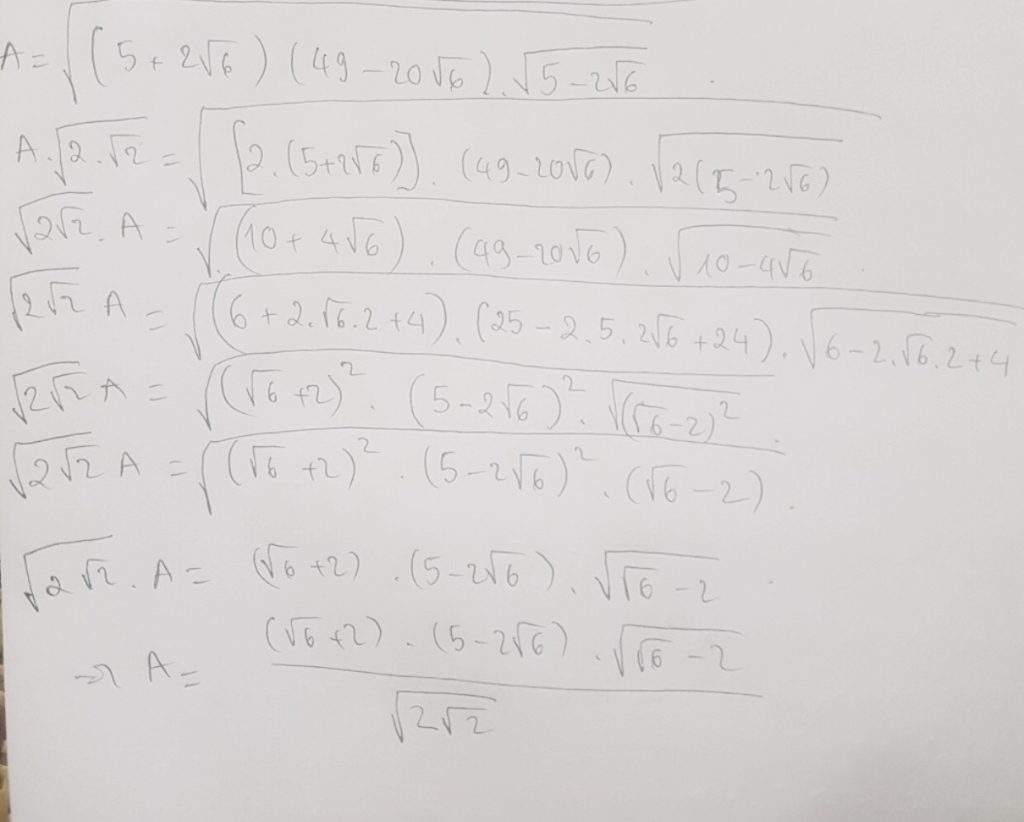 A = √((5 + 2√6)(49 − 20√6).√(5 − 2√6))
A.√(2.√2) = √([2.(5+2√6)].(49−20√6).√(2(5−2√6)))
√(2√2).A = √((10 + 4√6).(49−20√6).√(10−4√6))
√(2√2) A = √((6 + 2.√6.2 + 4).(25 − 2.5.2√6 + 24).√(6−2.√6.2+4))
√(2√2) A = √((√6 + 2)².(5−2√6)².√((√6−2)²))
√(2√2) A = √((√6 + 2)².(5−2√6)².(√6−2)).
√(2√2).A = (√6 + 2).(5−2√6).√(√6−2)
=> A = ((√6 + 2).(5−2√6).√(√6−2))/√(2√2)